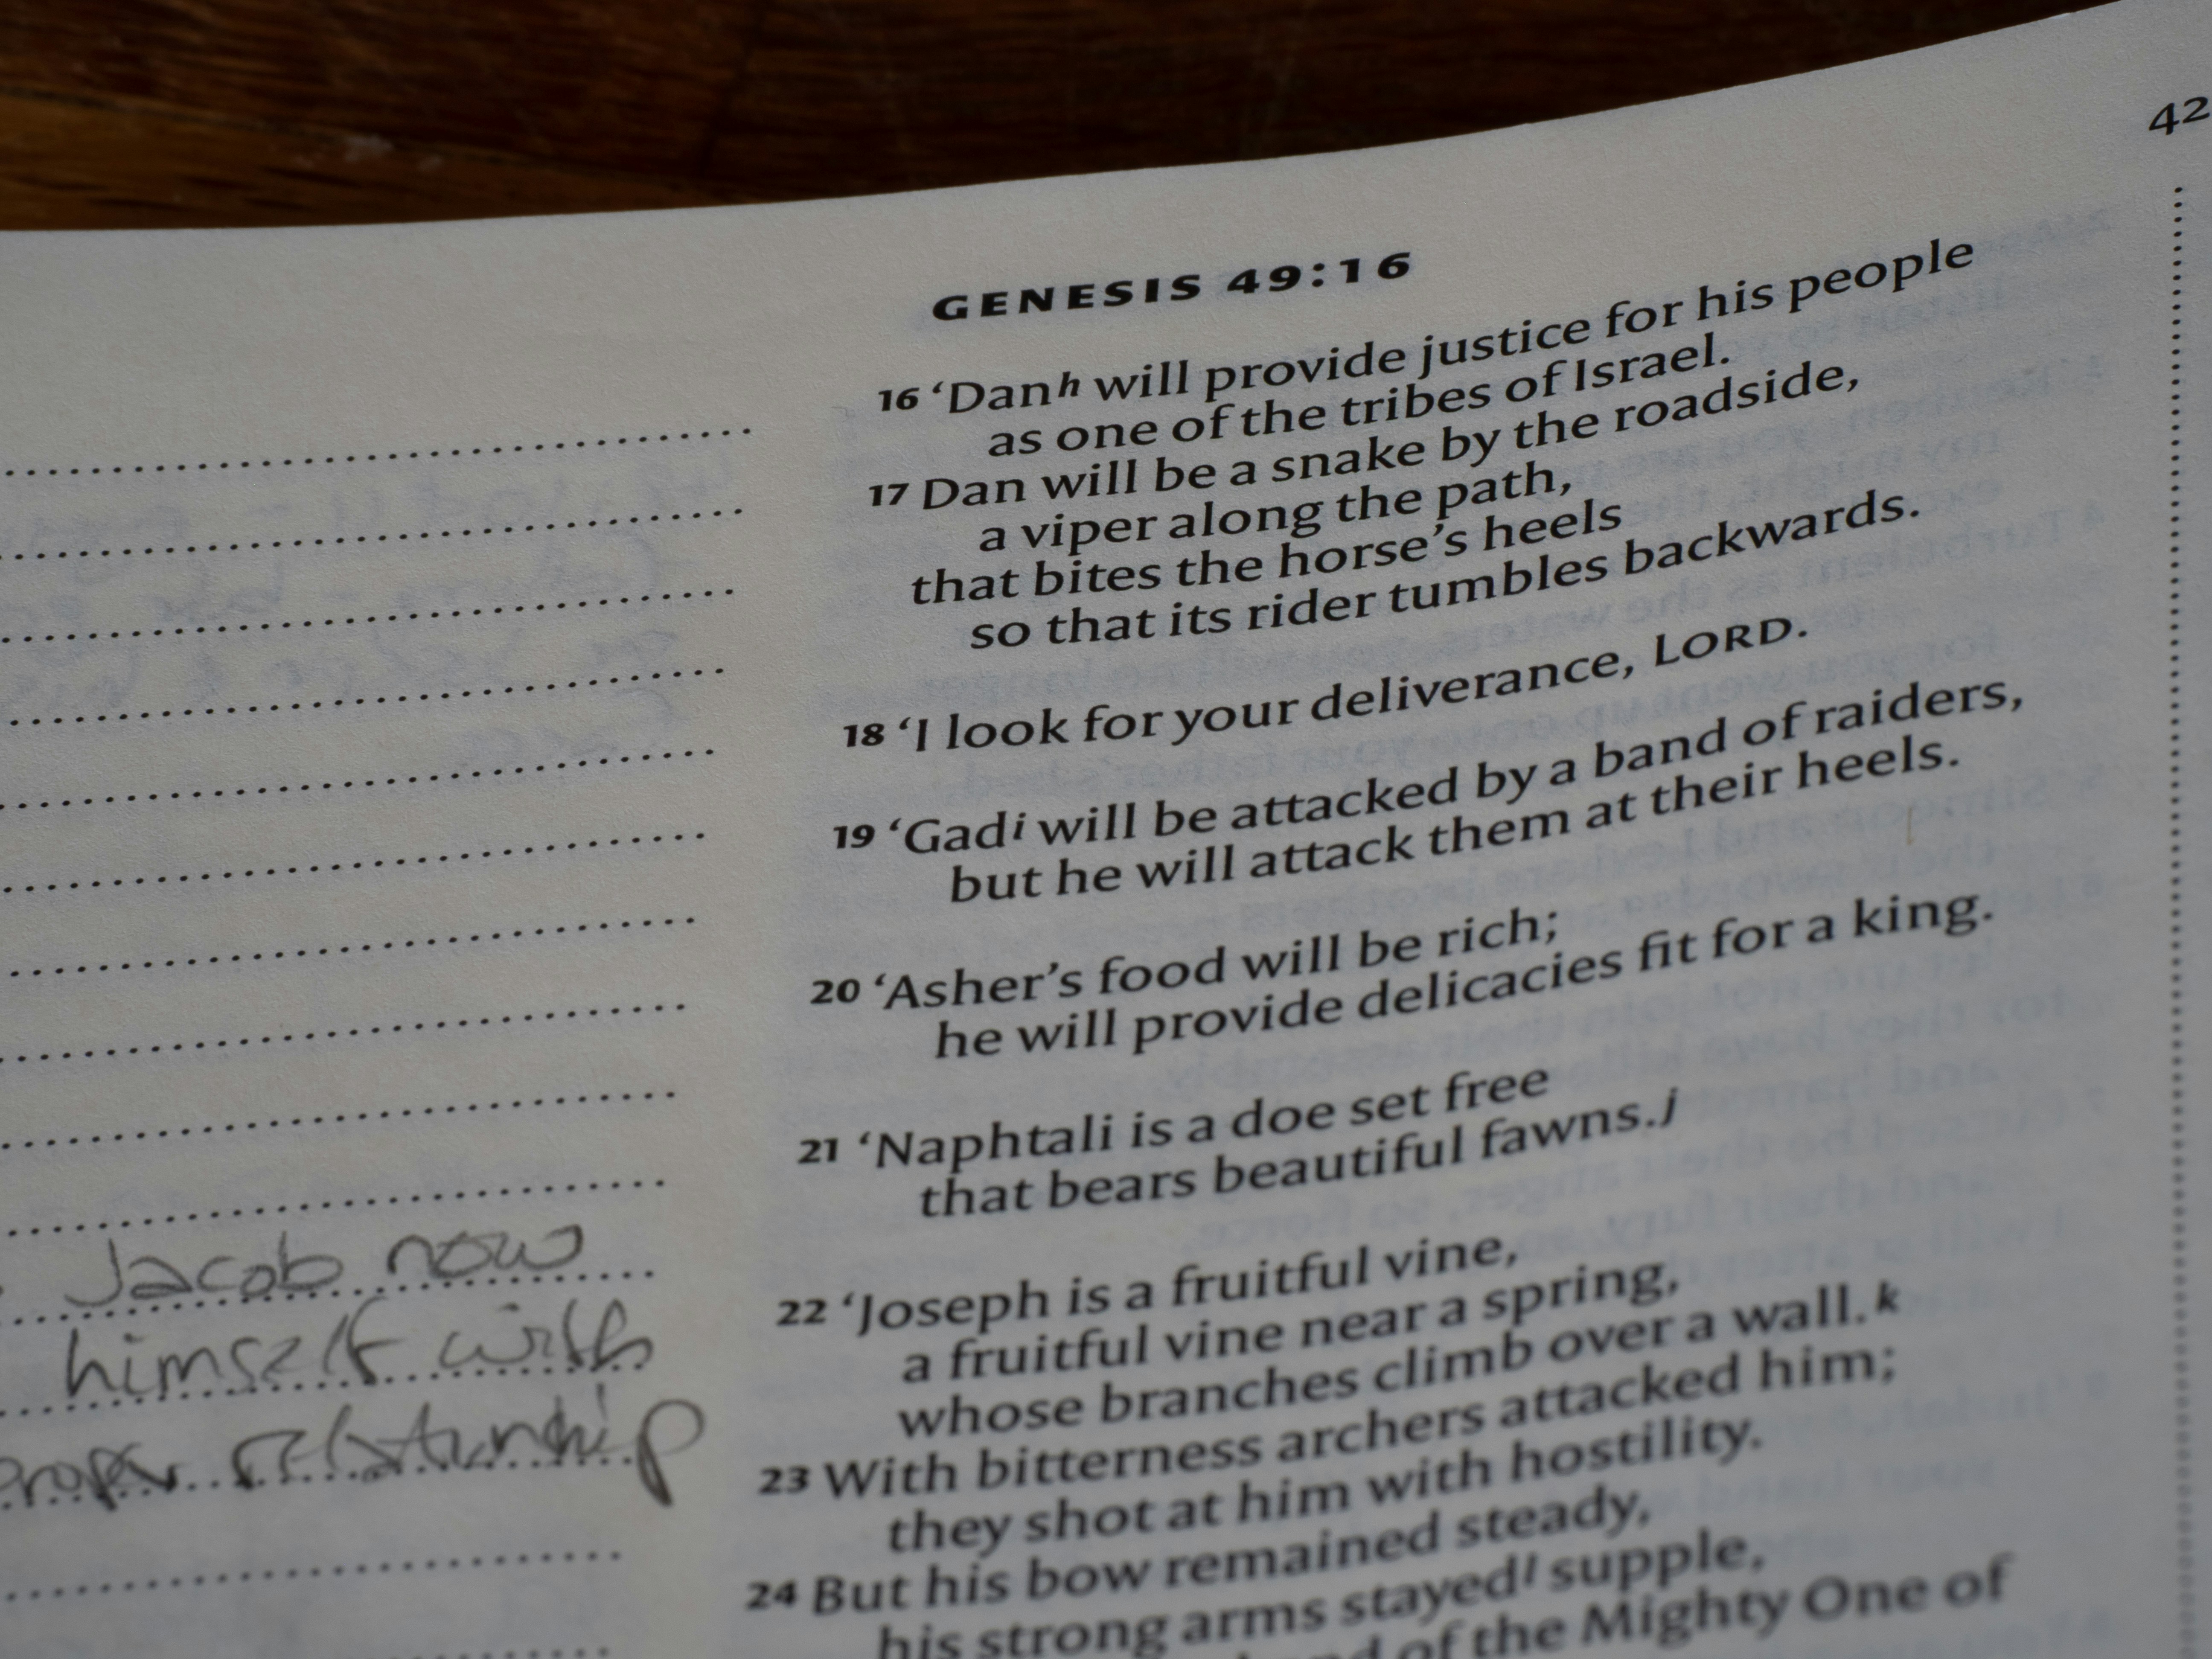 42
GENESIS 49:16
16 ‘Danh will provide justice for his people
as one of the tribes of Israel.
17 Dan will be a snake by the roadside,
a viper along the path,
that bites the horse’s heels
so that its rider tumbles backwards.
18 ‘I look for your deliverance, LORD.
19 ‘Gadi will be attacked by a band of raiders,
but he will attack them at their heels.
20 ‘Asher’s food will be rich;
he will provide delicacies fit for a king.
21 ‘Naphtali is a doe set free
that bears beautiful fawns.j
22 ‘Joseph is a fruitful vine,
a fruitful vine near a spring,
whose branches climb over a wall.k
23 With bitterness archers attacked him;
they shot at him with hostility.
24 But his bow remained steady,
his strong arms stayedl supple,
of the Mighty One of
Jacob now
himself with
relationship